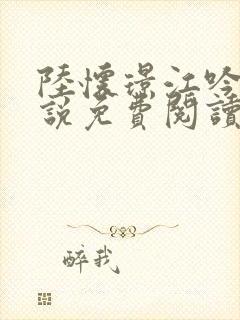 陸懷璟江吟
說免費閱讀
醉我